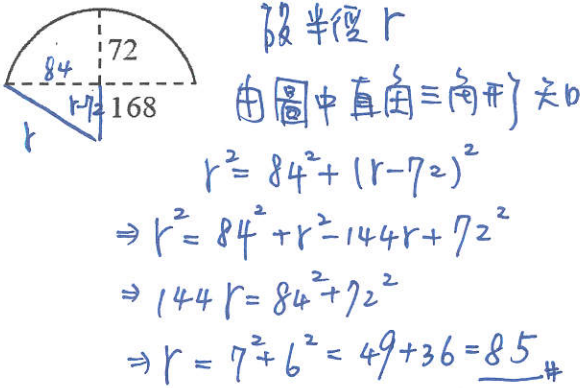 設半徑 r
72
84
r-72
168
r
由圖中直角三角形知
r² = 84² + (r-72)²
⇒ r² = 84² + r² - 144r + 72²
⇒ 144r = 84² + 72²
⇒ r = 7² + 6² = 49 + 36 = 85 #